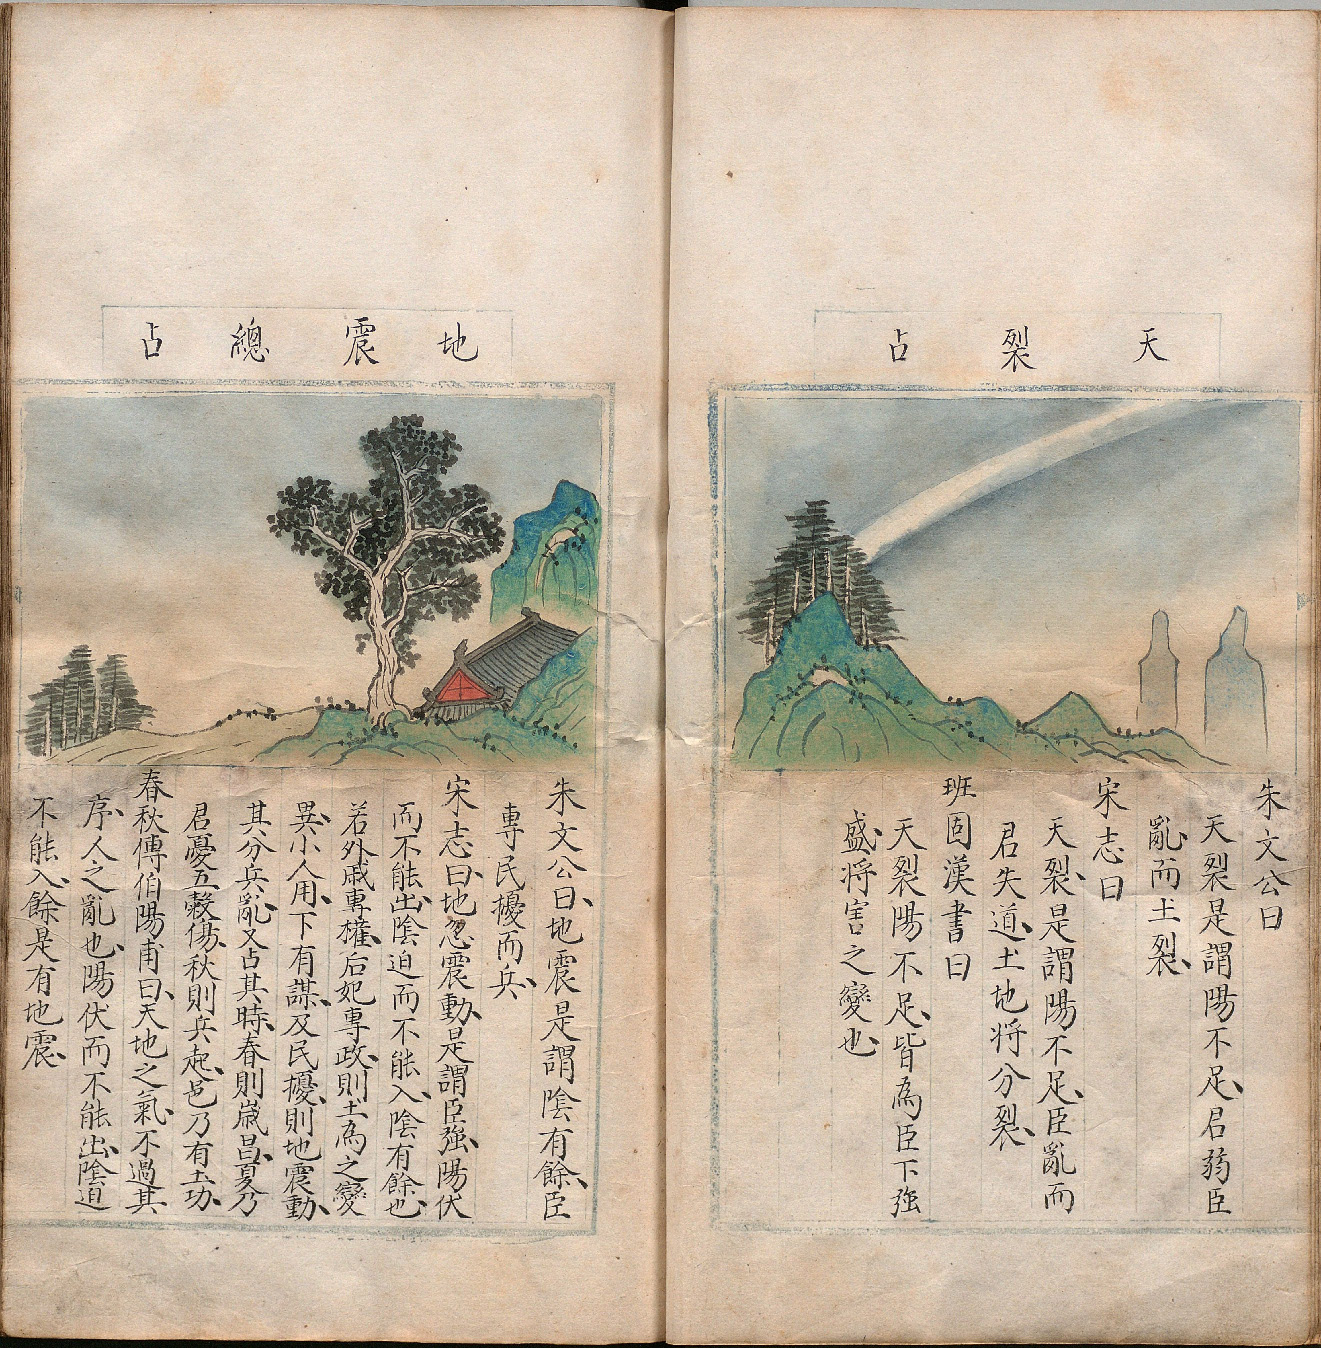 天裂占
朱文公曰
天裂是謂陽不足君弱臣
亂而土裂
宋志曰
天裂是謂陽不足臣亂而
君失道土地將分裂
班固漢書曰
天裂陽不足皆為臣下強
盛將害之變也
地震總占
朱文公曰地震是謂陰有餘臣
專民擾而兵
宋志曰地忽震動是謂臣強陽伏
而不能出陰迫而不能入陰有餘也
若外戚專權后妃專政則土為之變
異小人用下有謀及民擾則地震動
其分兵亂又占其時春則歲昌夏乃
君憂五穀傷秋則兵起邑乃有土功
春秋傳伯陽甫曰天地之氣不過其
序人之亂也陽伏而不能出陰迫
不能入餘是有地震